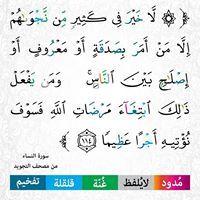 ۞ لَّا خَيْرَ فِي كَثِيرٍ مِّن نَّجْوَىٰهُمْ
إِلَّا مَنْ أَمَرَ بِصَدَقَةٍ أَوْ مَعْرُوفٍ أَوْ
إِصْلَٰحٍۭ بَيْنَ ٱلنَّاسِۚ وَمَن يَفْعَلْ
ذَٰلِكَ ٱبْتِغَآءَ مَرْضَاتِ ٱللَّهِ فَسَوْفَ
نُؤْتِيهِ أَجْرًا عَظِيمًا ١١٤
سورة النساء
من مصحف التجويد
مُدود لايُلفظ غُنّة قلقلة تفخيم